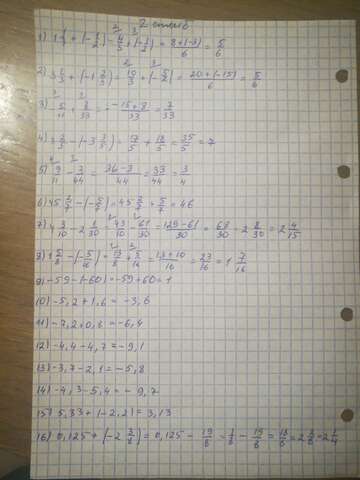 2 столб
1) 1 1/3 + (- 1/2) = 4/3 + (- 1/2) = 8+(-3)/6 = 5/6
2) 3 1/3 + (-1 2/3) = 10/3 + (- 5/2) = 20+(-15)/6 = 5/6
3) - 5/11 + 8/33 = - -15+8/33 = 7/33
4) 3 2/5 - (-3 3/5) = 17/5 + 18/5 = 35/5 = 7
5) 9/11 - 3/44 = 36-3/44 = 33/44 = 3/4
6) 45 2/7 - (- 5/7) = 45 2/7 + 5/7 = 46
7) 4 3/10 - 2 1/30 = 43/10 - 61/30 = 129-61/30 = 68/30 = 2 8/30 = 2 4/15
8) 1 5/8 - (- 5/16) = 13/8 + 5/16 = 13+10/16 = 23/16 = 1 7/16
9) -59-(-60) = -59+60 = 1
10) -5,2+1,6 = -3,6
11) -7,2+0,8 = -6,4
12) -4,4-4,7 = -9,1
13) -3,7-2,1 = -5,8
14) -4,3-5,4 = -9,7
15) 5,33+(-2,2) = 3,13
16) 0,125+(-2 3/8) = 0,125 - 19/8 = 1/8 - 19/8 = 18/8 = 2 2/8 = 2 1/4